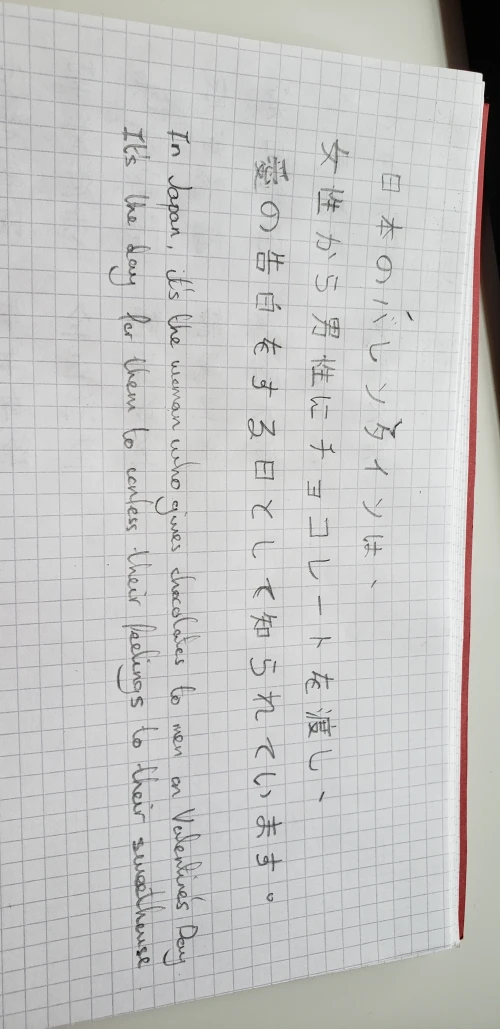 日本のバレンタインは、
女性から男性にチョコレートを渡し、
愛の告白をする日として知られています。
In Japan, it's the woman who gives chocolates to men on Valentine's Day
It's the day for them to confess their feelings to their